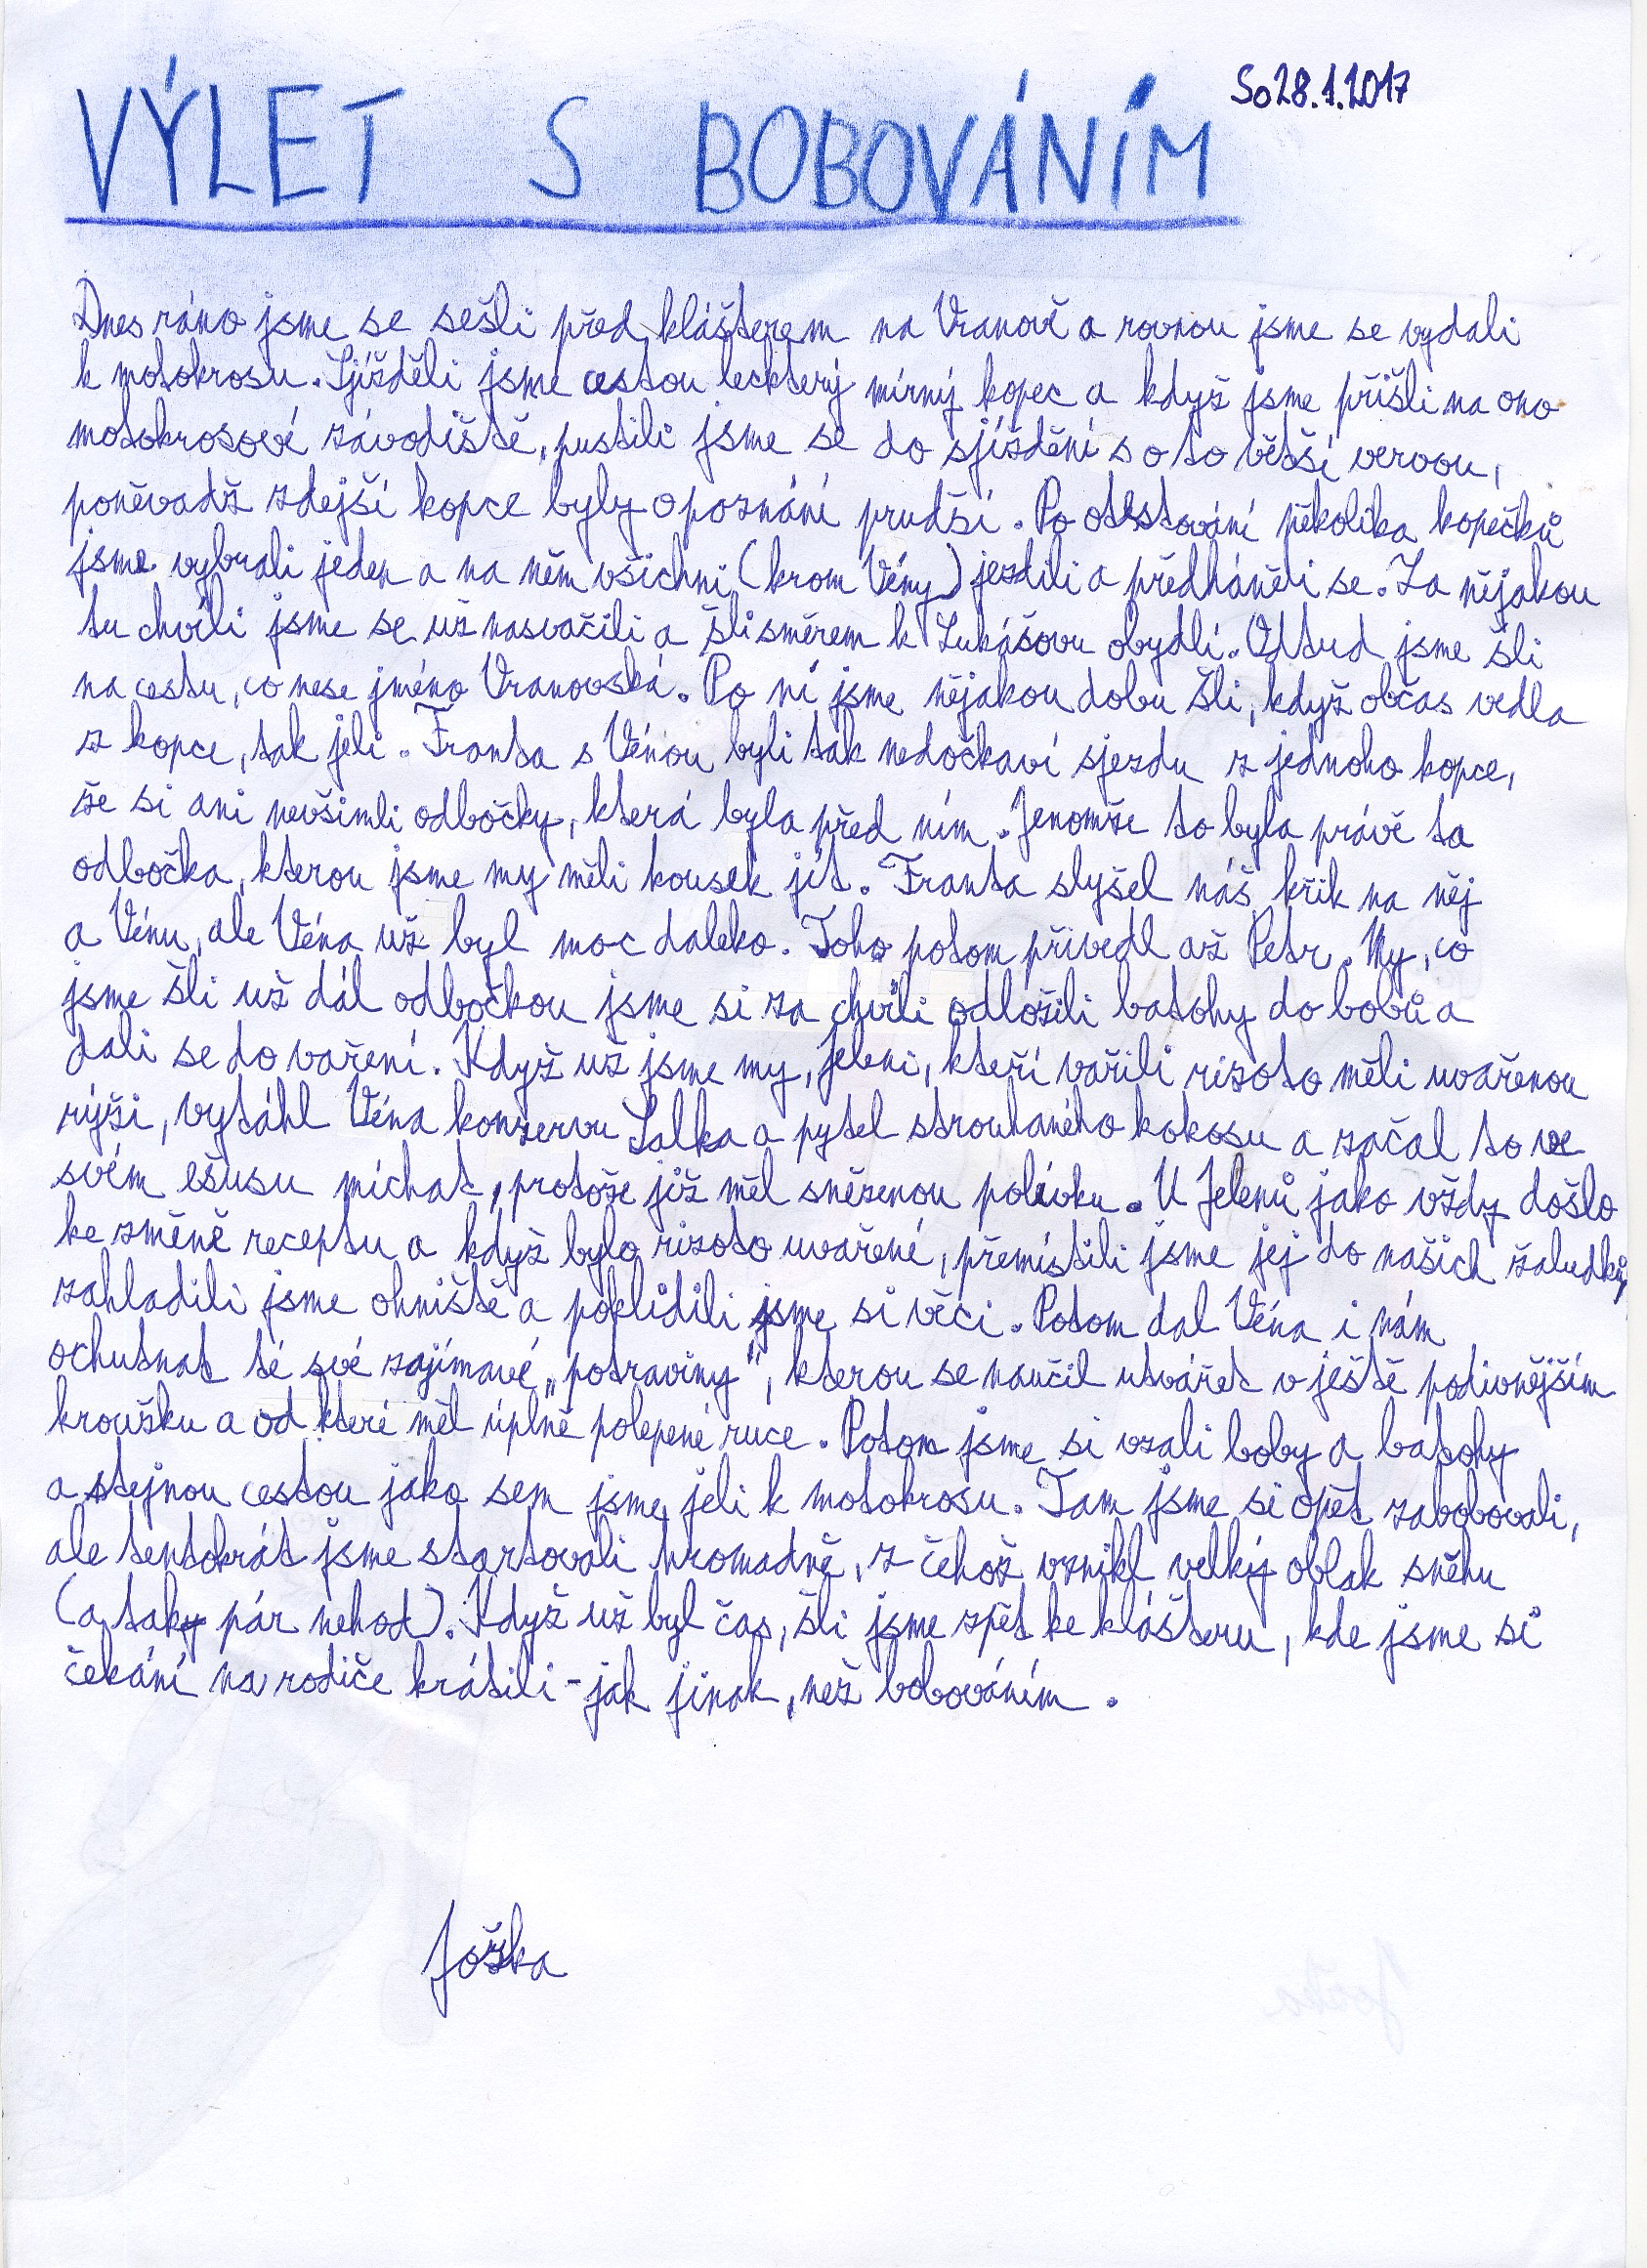 So 28.1.2017
VÝLET S BOBOVÁNÍM
Dnes ráno jsme se sešli před klášterem na Vranově a rovnou jsme se vydali
k motokrosu. Sjížděli jsme cestou leckterý mírný kopec a když jsme přišli na ono
motokrosové závodiště, pustili jsme se do sjíždění s o to větší vervou,
poněvadž zdejší kopce byly o poznání prudší. Po otestování několika kopečků
jsme vybrali jeden a na něm všichni (krom Vény) jezdili a předháněli se. Za nějakou
tu chvíli jsme se už nasvačili a šli směrem k Lukášovu obydlí. Odtud jsme šli
na cestu, co nese jméno Vranovská. Po ní jsme nějakou dobu šli, když občas vedla
z kopce, tak jeli. Franta s Vénou byli tak nedočkaví sjezdu z jednoho kopce,
že si ani nevšimli odbočky, která byla před ním. Jenomže to byla právě ta
odbočka, kterou jsme my měli kousek jít. Franta slyšel náš křik na něj
a Vénu, ale Véna už byl moc daleko. Toho potom přivedl až Petr. My, co
jsme šli už dál odbočkou jsme si za chvíli odložili batohy do bobů a
dali se do vaření. Když už jsme my, Jeleni, kteří vařili rizoto měli uvařenou
rýži, vytáhl Véna konzervu Salka a pytel strouhaného kokosu a začal to ve
svém ešusu míchat, protože již měl snězenou polívku. U Jelenů jako vždy došlo
ke změně receptu a když bylo rizoto uvařené, přemístili jsme jej do našich žaludků,
zahladili jsme ohniště a poklidili jsme si věci. Potom dal Véna i nám
ochutnat té své zajímavé „potraviny“, kterou se naučil utvářet v ještě podivnějším
kroužku a od které měl úplně polepené ruce. Potom jsme si vzali boby a batohy
a stejnou cestou jako sem jsme jeli k motokrosu. Tam jsme si opět zabobovali,
ale tentokrát jsme startovali hromadně, z čehož vznikl velký oblak sněhu
(a taky pár nehod). Když už byl čas, šli jsme zpět ke klášteru, kde jsme si
čekání na rodiče krátili - jak jinak, než bobováním.
Jožka